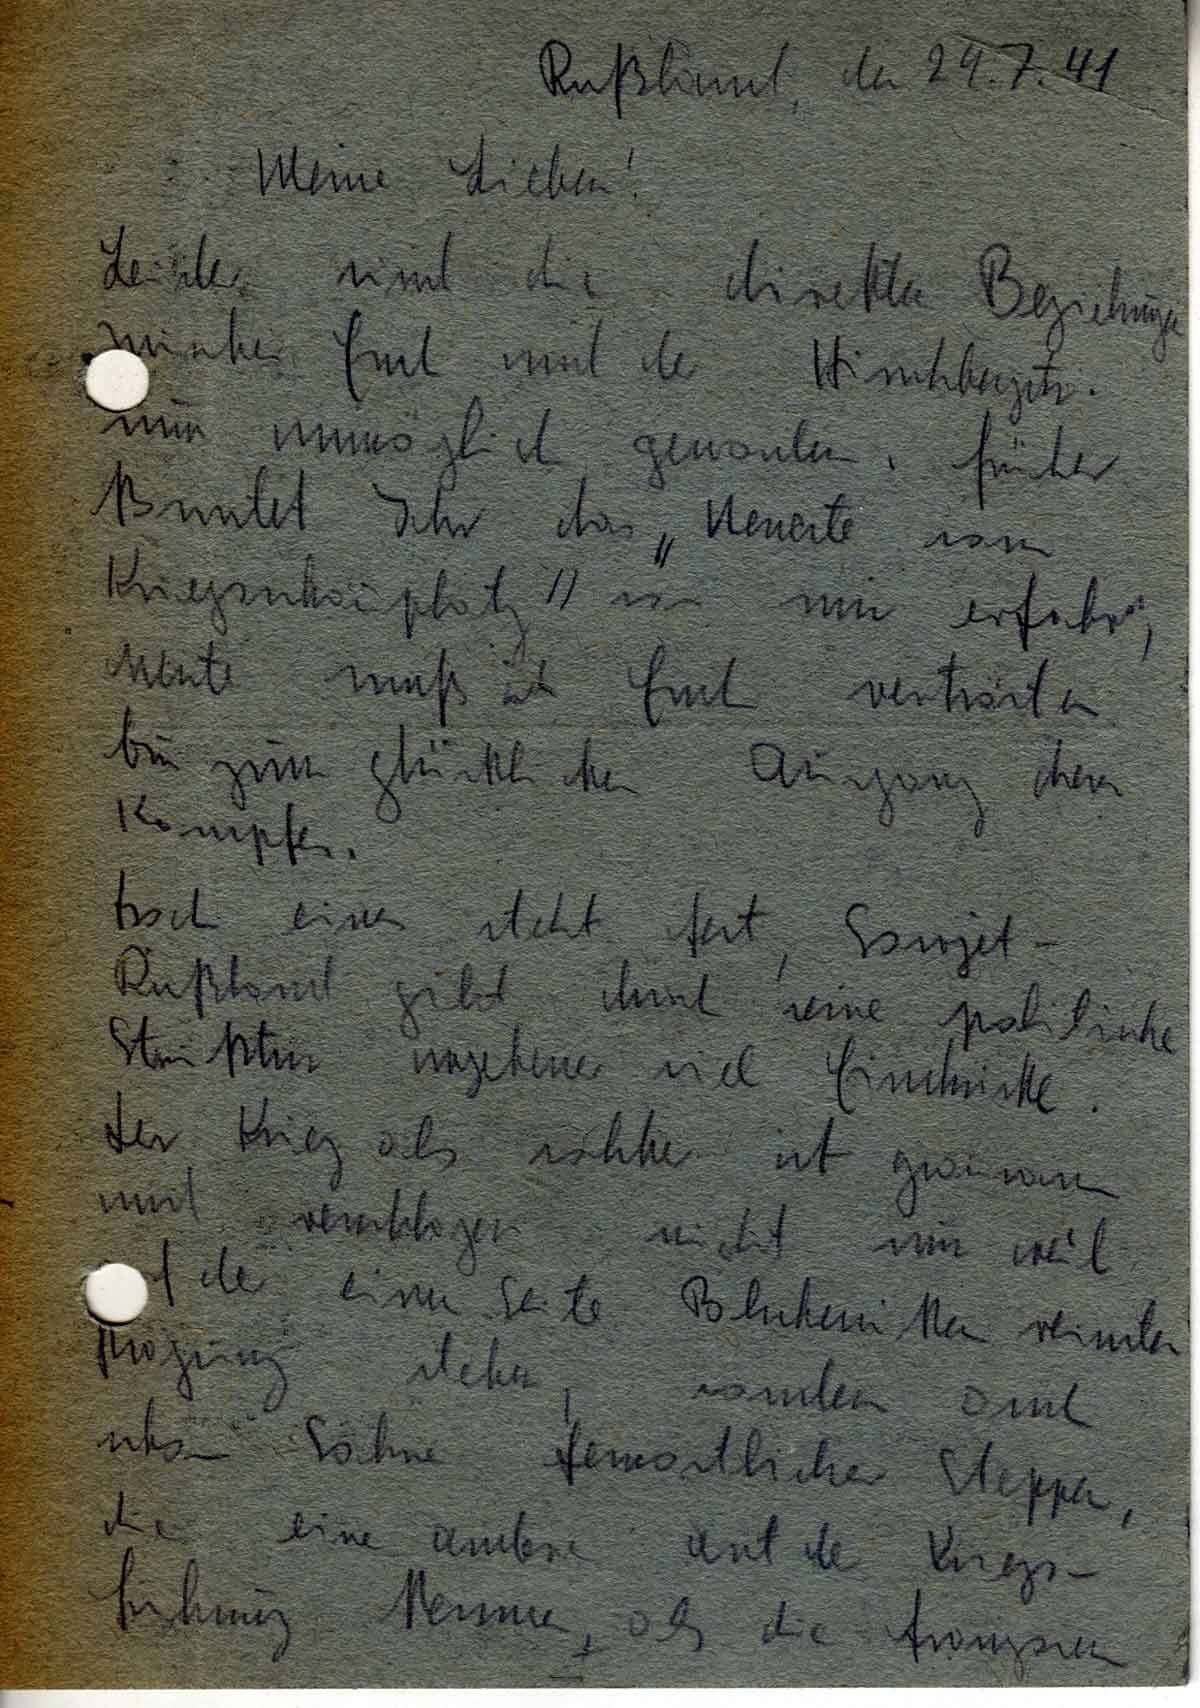 Rußland, den 24.7.41
Meine Lieben!
Leider sind die direkten Beziehungen
zwischen Euch und der
nun unmöglich geworden. Früher
konntet Ihr das "Neueste vom
Kriegsschauplatz" von mir erfahren,
heute muß ich Euch vertrösten
bis zum glücklichen Ausgang dieses
Kampfes.
Doch eines steht fest, Sowjet-
Rußland gibt durch seine politische
Struktur ungeheuer viel Eindrücke.
Der Krieg als solcher ist grausam
und verschlagen nicht nur weil
auf der einen Seite Bolschewiken reinster
Prägung stehen, sondern auch
Söhne fernöstlicher Steppen,
die eine andere Art der Kriegs-
führung kennen, als die Franzosen